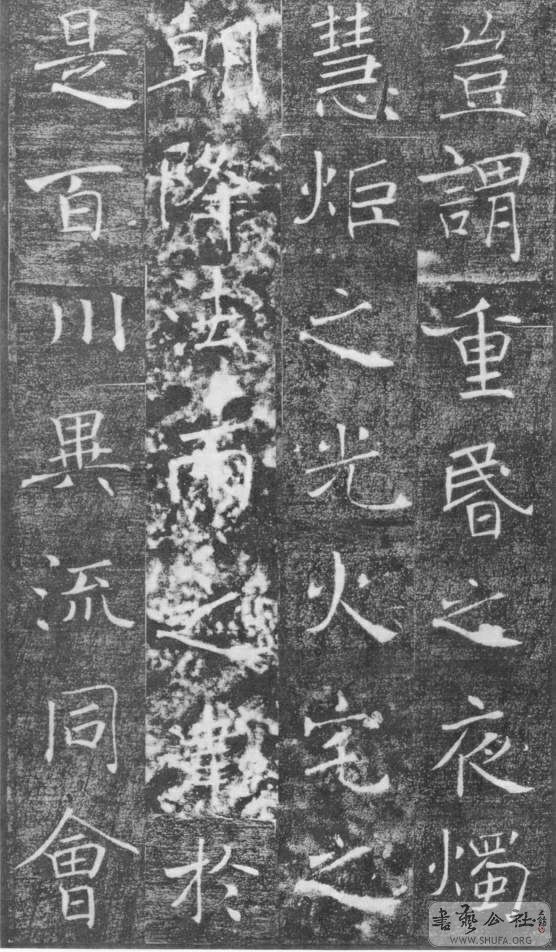 豈謂重昬之夜燭
慧炬之光火宅之
朝降法雨之津於
是百川異流同會
書藝公社
WWW.SHUFA.ORG